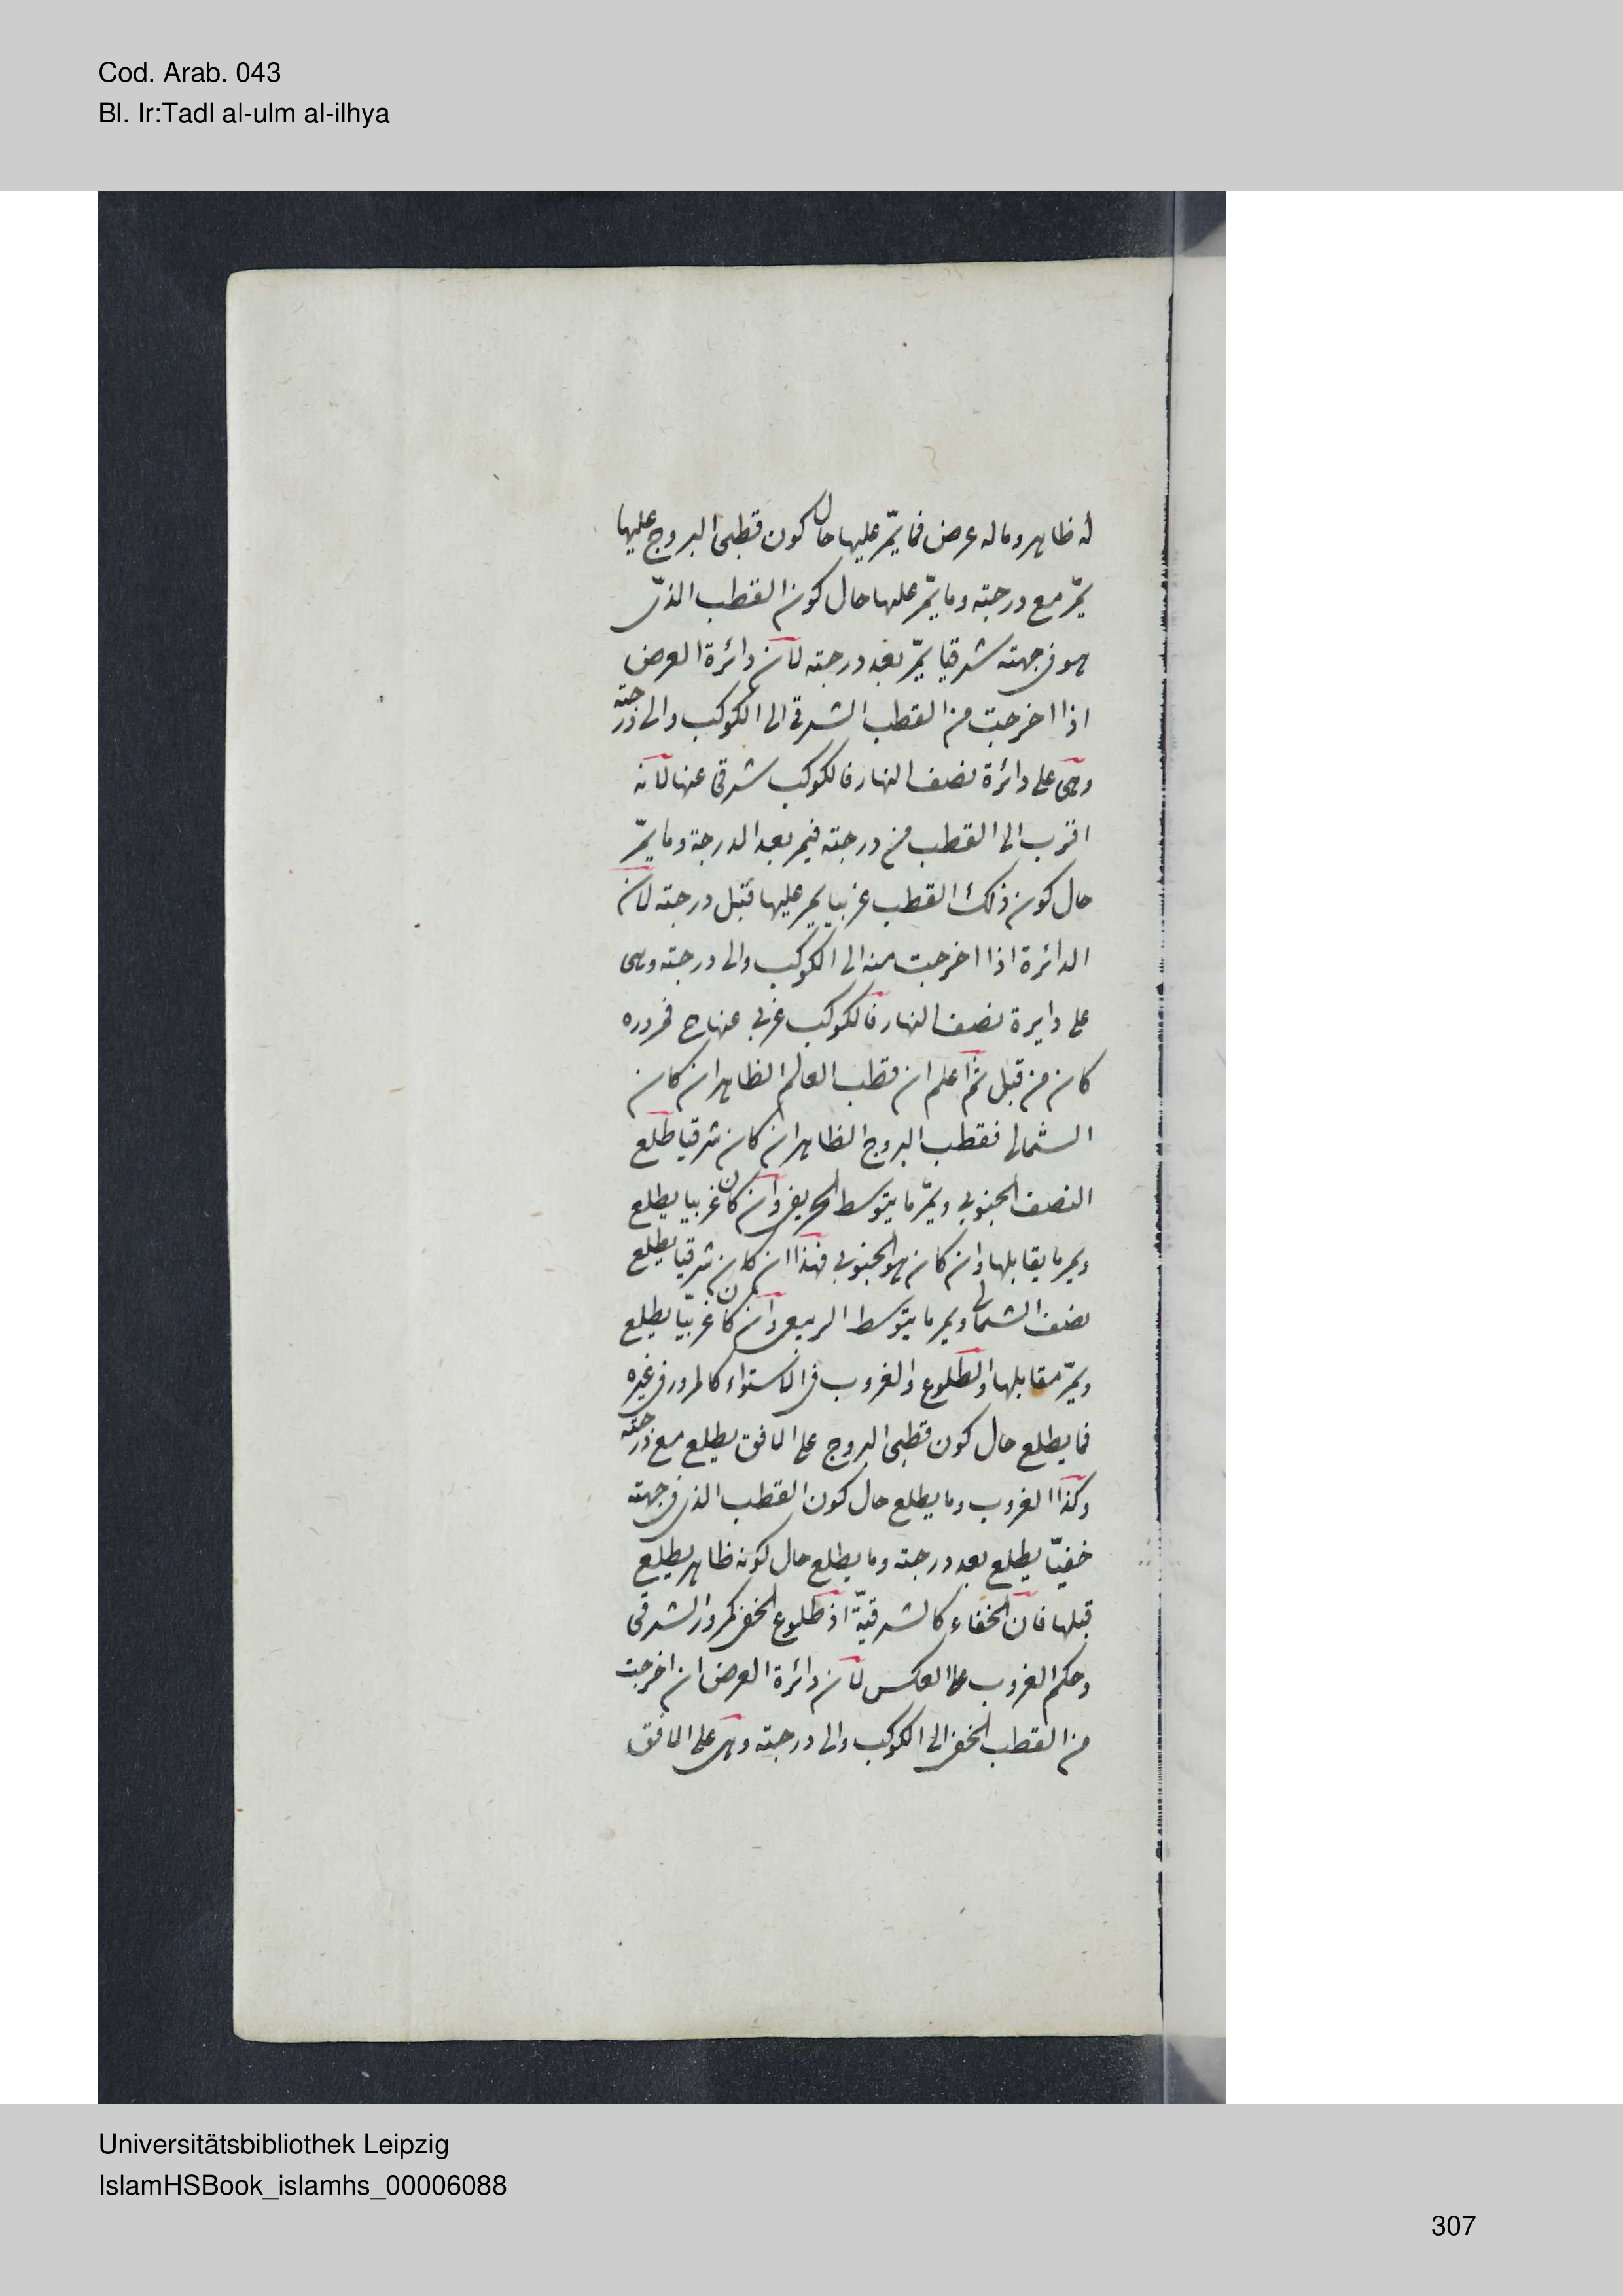 Cod. Arab. 043
Bl. Ir:Tadl al-ulm al-ilhya
له ظاهر وما له عرض فما يمّر عليها حال كون قطبى البروج عليها
يمّر مع درجته وما يمّر عليها حال كون القطب الذى
هو فى جهته شرقيا يمّر بعد درجته لأن دائرة العرض
اذا اخرجت من القطب الشرقى الى الكوكب والى درجته
وهى على دائرة نصف النهار فالكوكب شرقى عنها لأنه
اقرب الى القطب من درجته فيمر بعد الدرجة وما يمّر
حال كون ذلك القطب غربيا يمر عليها قبل درجته لأن
الدائرة اذا اخرجت منه الى الكوكب والى درجته وهى
على دايرة نصف النهار فالكوكب غربى عنها ح فمروره
كان من قبل ثم اعلم ان قطب العالم الظاهر ان كان
الشمالى فقطب البروج الظاهر ان كان شرقيا طلع
النصف الجنوبى ويمّر ما يتوسط الخريفى وان كان غربيا يطلع
ويمر ما يقابلها وان كان هو الجنوبى فهذا ان كان شرقيا يطلع
نصف الشمالى ويمر ما يتوسط الربيعى وان كان غربيّا يطلع
ويمّر مقابلها والطلوع والغروب فى الاستواء كالمرور فى غيره
فما يطلع حال كون قطبى البروج على الافق يطلع مع درجته
وكذا الغروب وما يطلع حال كون القطب الذى فى جهته
خفيّا يطلع بعد درجته وما يطلع حال كونه ظاهر يطلع
قبلها فان الخفاء كالشرقيّة اذ طلوع الخفى كمرور الشرقى
وحكم الغروب على العكس لأن دائرة العرض ان اخرجت
من القطب الخفى الى الكوكب والى درجته وهى على الافق
Universitätsbibliothek Leipzig
IslamHSBook_islamhs_00006088
307